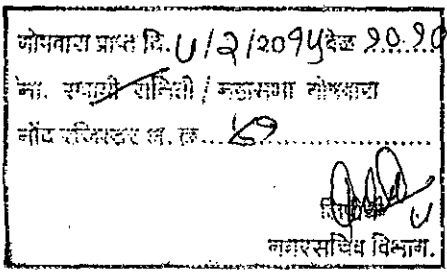 गोषवारा प्राप्त दि. ५/२/२०१५ वेळ १०.१०
मा. स्थायी समिती / महासभा गोषवारा
नोंद रजिस्टर अ. क्र.
नगरसचिव विभाग.